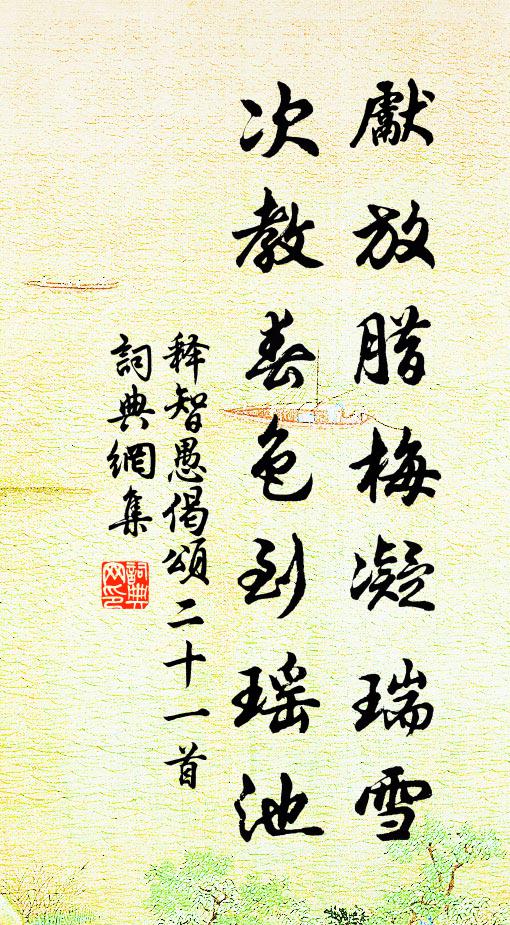 獻放腊梅凝瑞雪
次教春色到瑶池
释智愚偈頌二十一首
詞典網集
詞典
网印